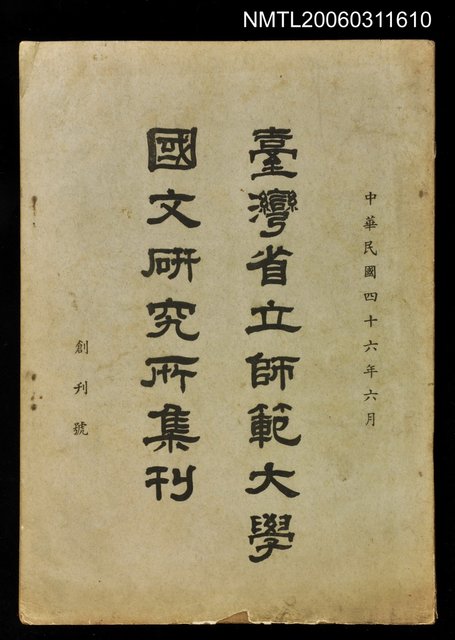 NMTL20060311610
中華民國四十六年六月
臺灣省立師範大學
國文研究所集刊
創刊號